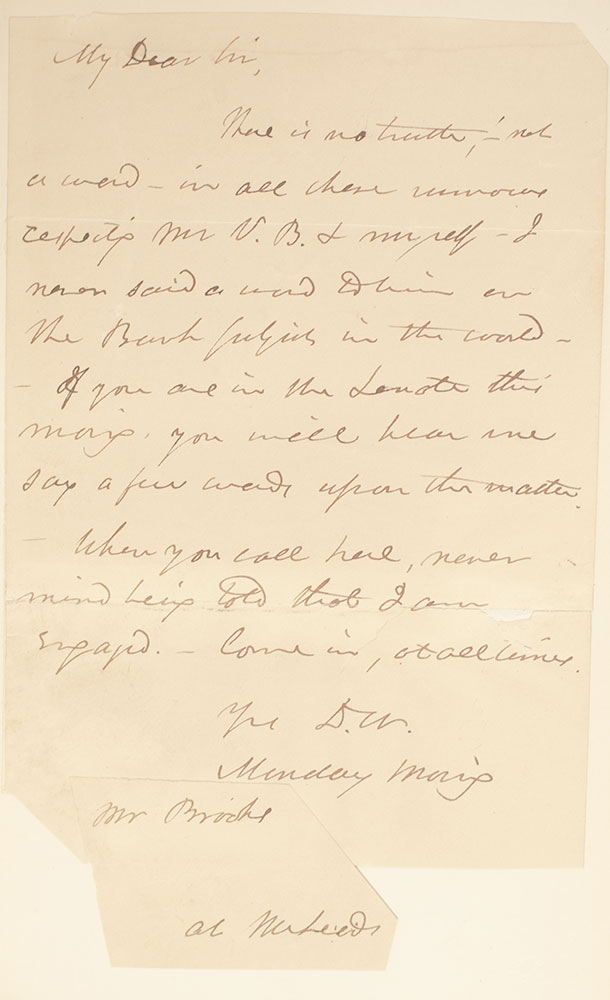 My Dear Sir,
There is no truth, - not
a word - in all these rumours
respectg Mr V. B. & myself - I
never said a word to him on
the Bank subject in the world -
- If you are in the Senate this
morng, you will hear me
say a few words upon the matter.
- When you call here, never
mind being told that I am
engaged. - Come in, at all times.
Yrs D. W.
Monday morng
Mr Brooks
at